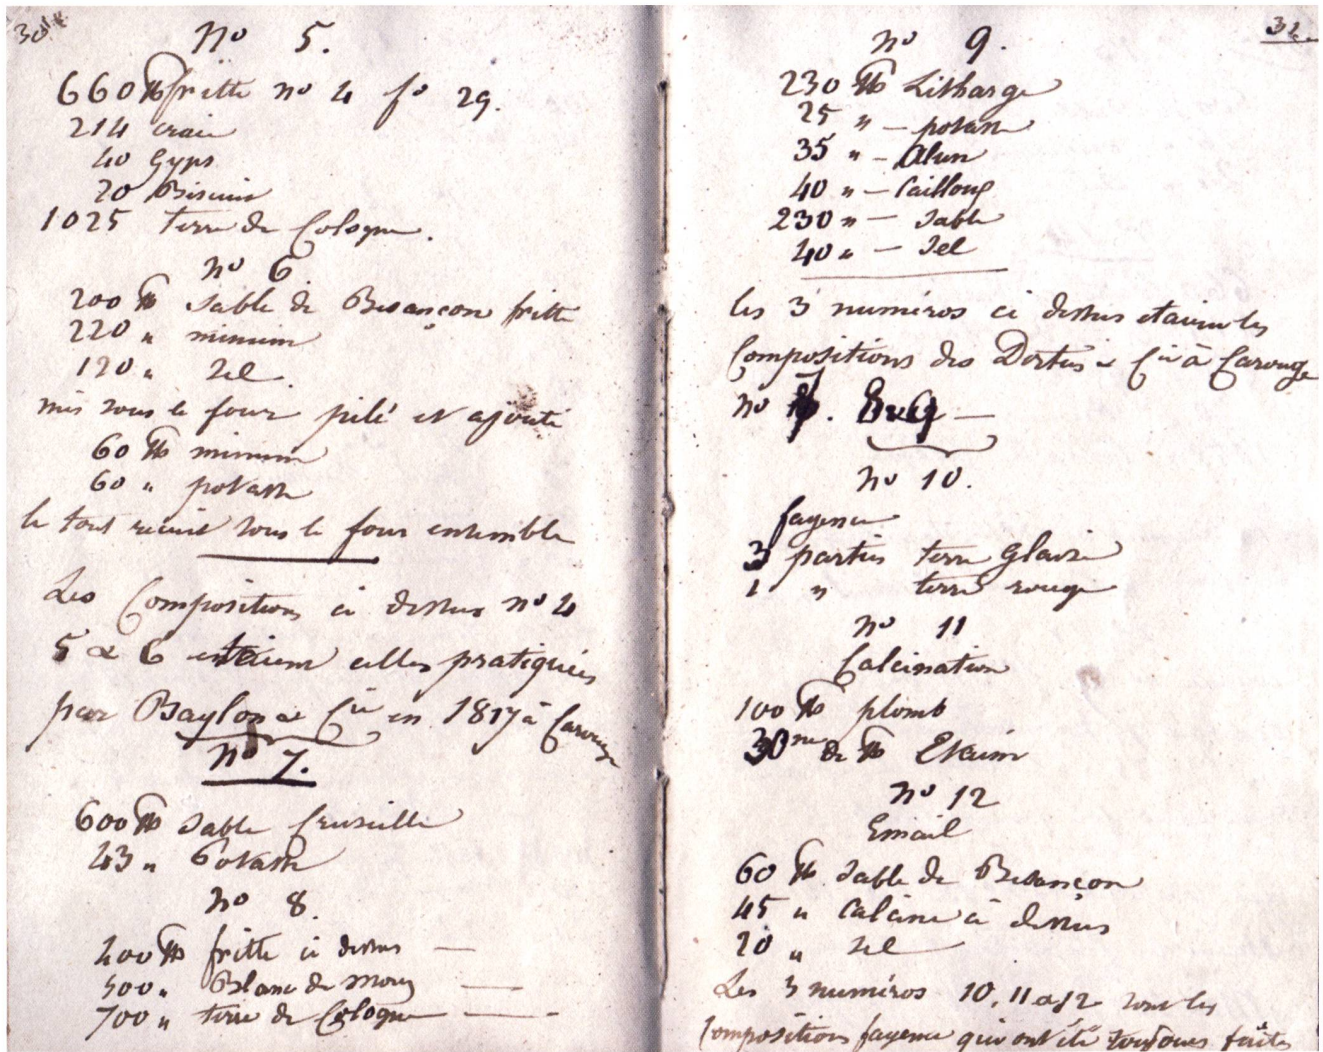 No 5.
660 ℔ fritte no 4 fo 29.
214 craie
40 Gyps
20 Biscuit
1025 terre de Cologne.
No 6
200 ℔ Sable de Besançon fritte
220 " minium
120 " Sel.
mis sous le four pilé et ajouté
60 ℔ minium
60 " potasse
le tout recuit sous le four ensemble
Les Compositions ci dessus no 4
5 & 6 etaient celles pratiquées
par Baylon & Cie en 1817 à Carouge
No 7.
600 ℔ Sable Cruseille
43 " Potasse
No 8.
400 ℔ fritte ci dessus —
500 " Blanc de Morez —
700 " terre de Cologne —
32.
No 9.
230 ℔ Litharge
25 " — potasse
35 " — Alun
40 " — Cailloux
230 " — Sable
40 " — Sel
les 3 numéros ci dessus etaient les
Compositions des Dortus & Cie à Carouge
no 7. 8 & 9 —
No 10.
fayence
3 parties terre Glaise
1 " terre rouge
No 11
Calcination
100 ℔ plomb
30 de ℔ Etaim
No 12
Email
60 ℔ Sable de Besançon
45 " Calcine ci dessus
20 " Sel
Les 3 numéros 10, 11 & 12 sont les
Compositions fayence qui ont été toujours faites